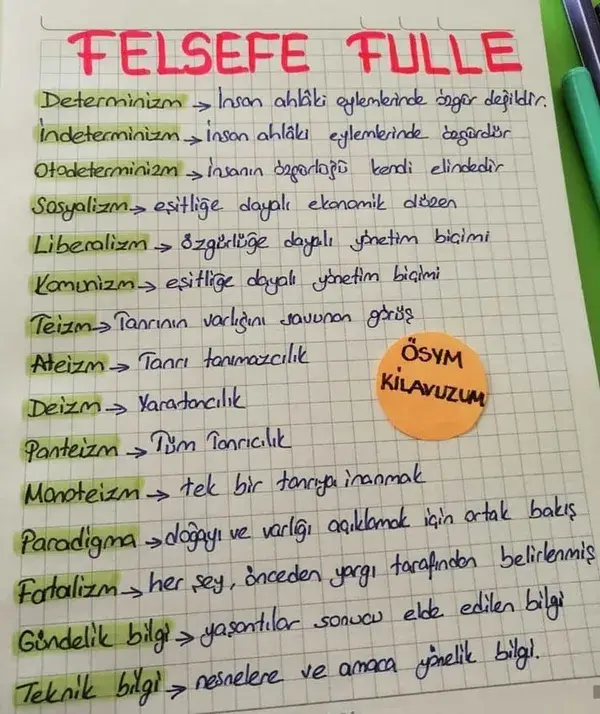 FELSEFE FULLE
Determinizm → İnsan ahlâki eylemlerinde özgür değildir.
İndeterminizm → İnsan ahlâki eylemlerinde özgürdür
Otodeterminizm → İnsanın özgürlüğü kendi elindedir
Sosyalizm → eşitliğe dayalı ekonomik düzen
Liberalizm → Özgürlüğe dayalı yönetim biçimi
Komunizm → eşitliğe dayalı yönetim biçimi
Teizm → Tanrının varlığını savunan görüş
Ateizm → Tanrı tanımazcılık
ÖSYM
KİLAVUZUM
Deizm → Yaratancılık
Panteizm → Tüm Tanrıcılık
Monoteizm → tek bir tanrıya inanmak
Paradigma → doğayı ve varlığı açıklamak için ortak bakış
Fatalizm → her şey, önceden yargı tarafından belirlenmiş
Gündelik bilgi → yaşantılar sonucu elde edilen bilgi
Teknik bilgi → nesnelere ve amaca yönelik bilgi.